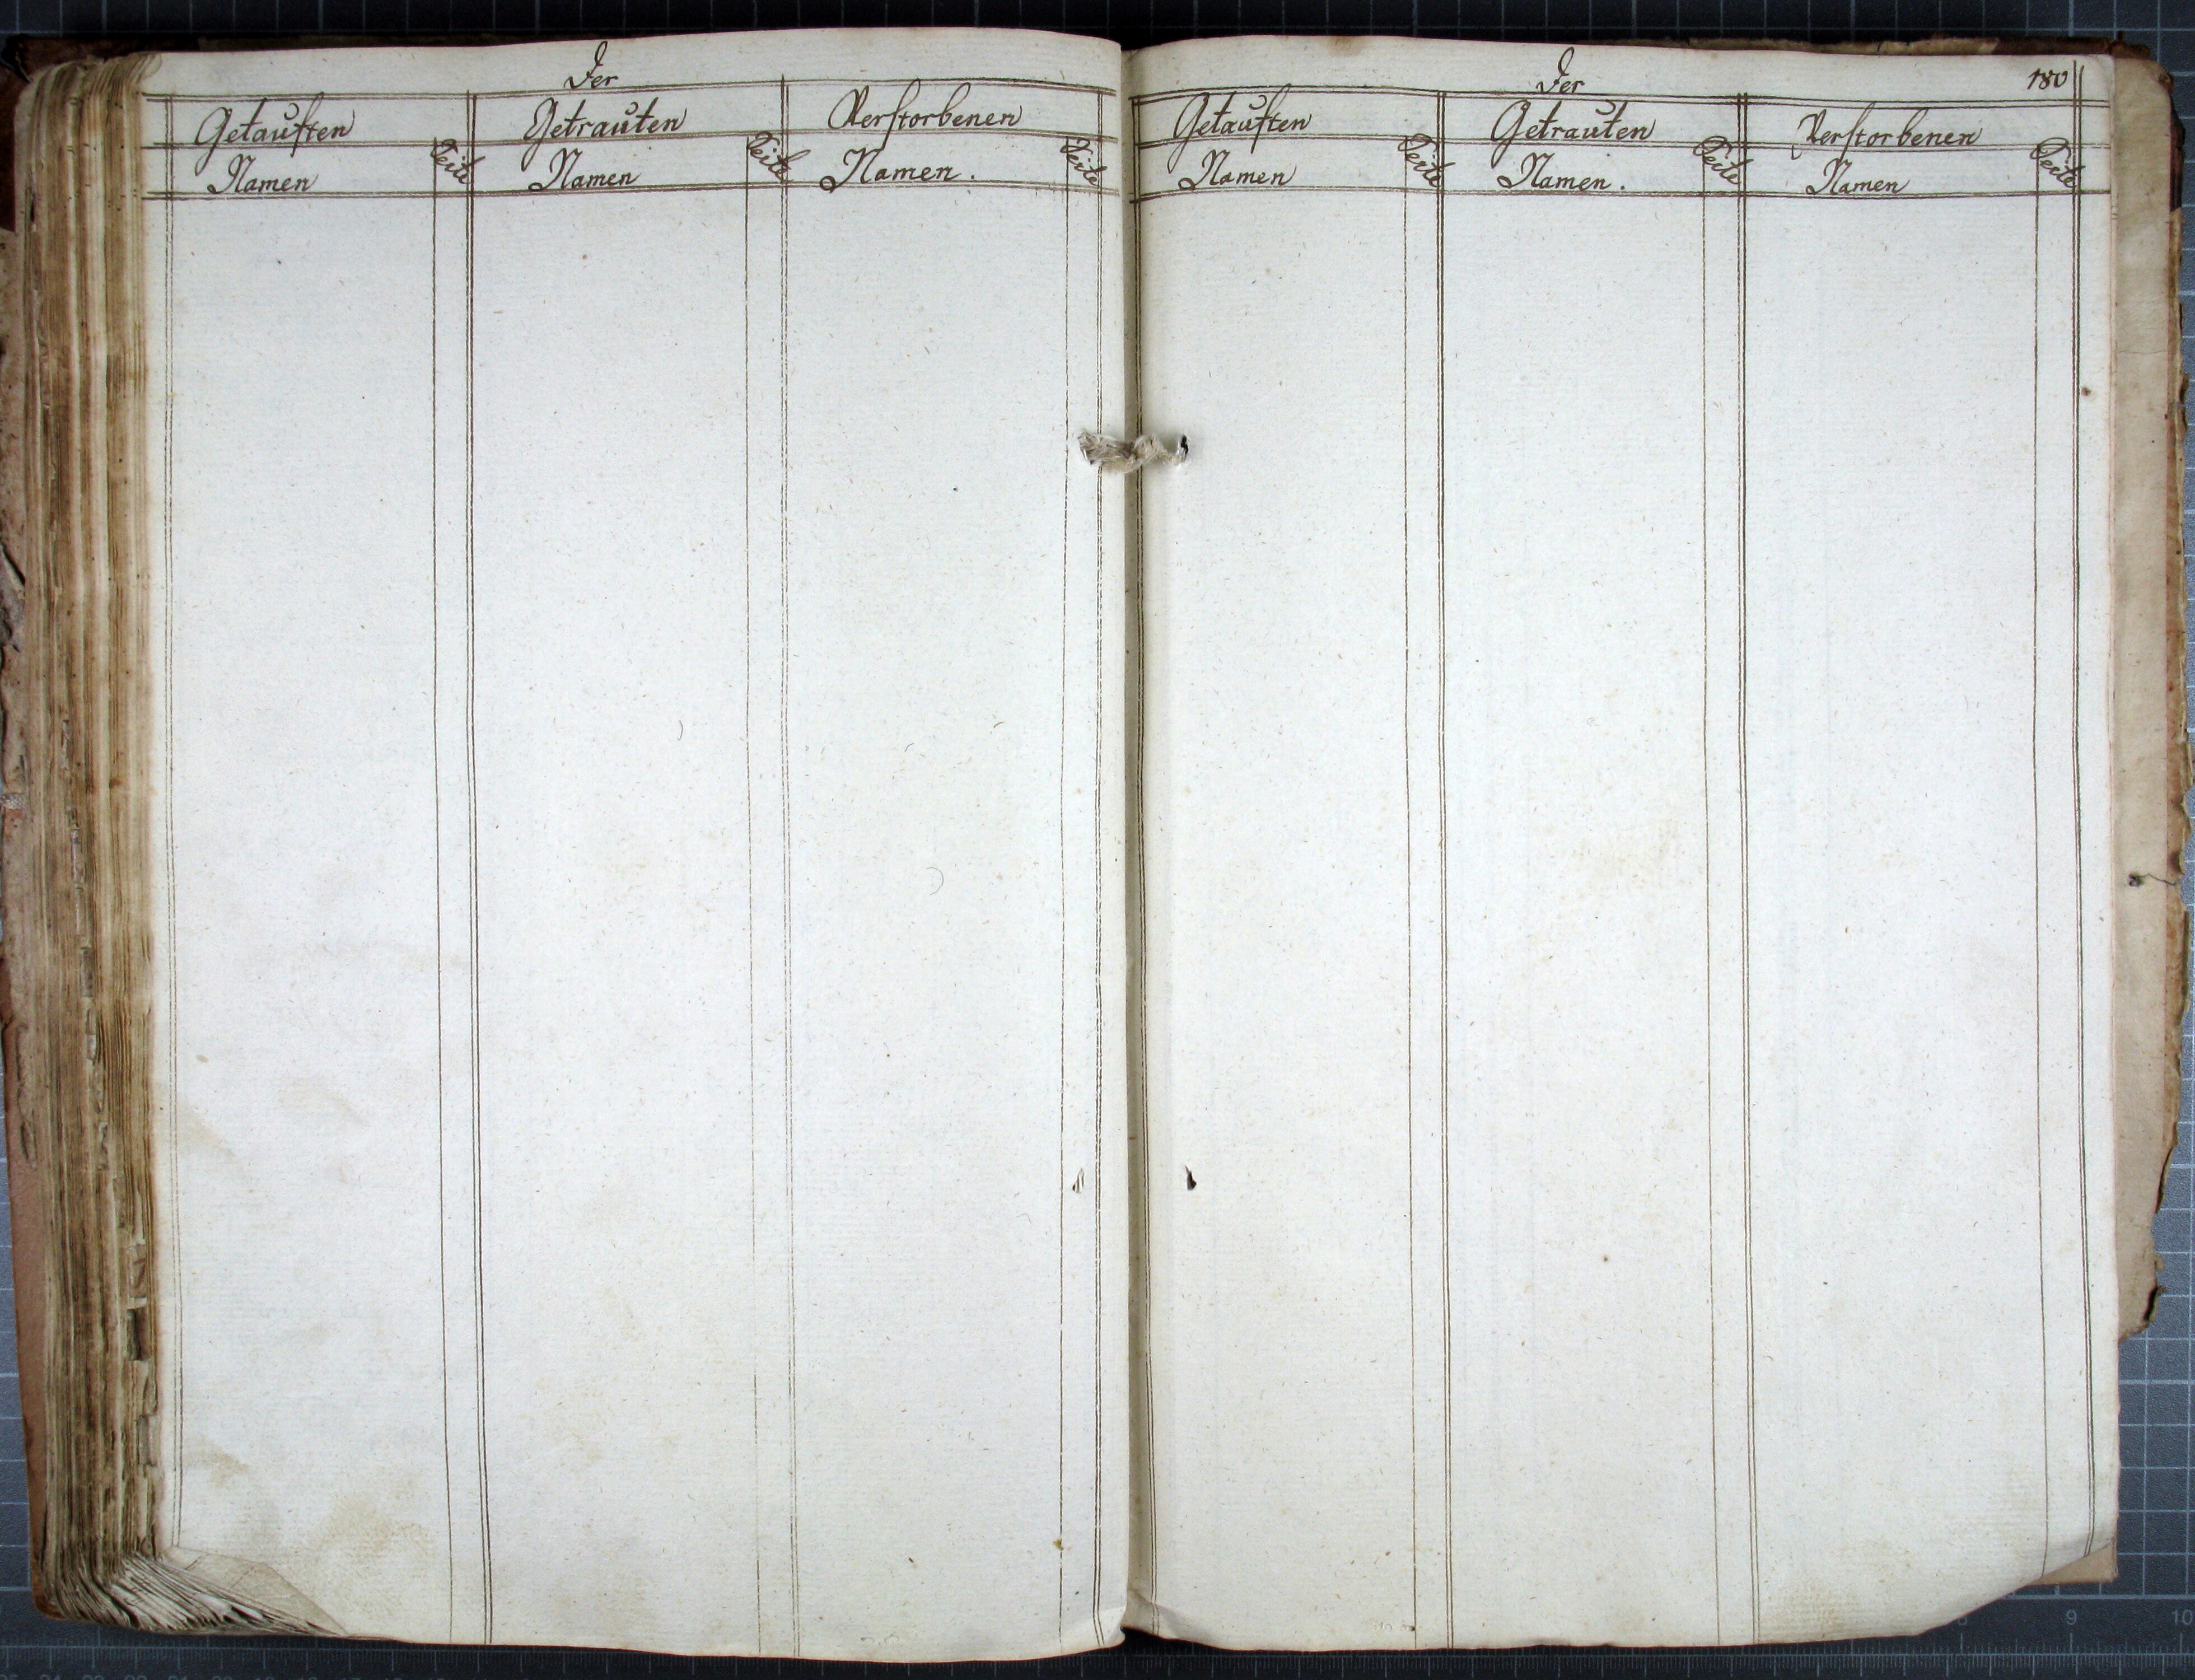 Der
Getauften Getrauten Verstorbenen
Namen Seite Namen Seite Namen. Seite
Der 180
Getauften Getrauten Verstorbenen
Namen Seite Namen. Seite Namen Seite
9 10